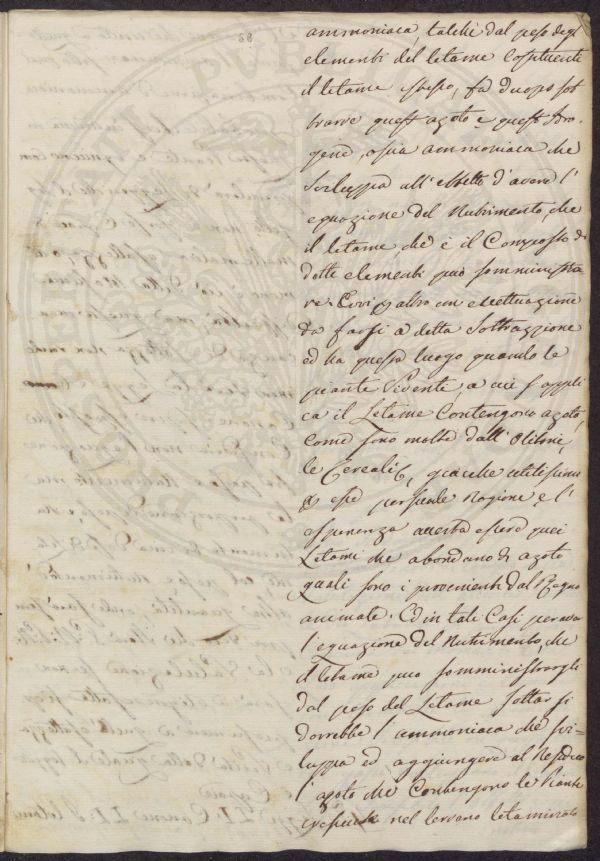 38
ammoniaca, talchè dal peso degl
elementi del letame Costituenti
il letame istesso, fà duopo sot
trarre quest azoto e quest Idro-
geno, ossia ammoniaca che
Sviluppa all' effetto d'avere l'
equazione del Nutrimento, che
il letame, che è il Composto di
detti elementi può somministra
re. Evvi altro un effettuazione
da farsi a detta Sottrazzione
ed ha questa luogo quando le
piante Vivente, a cui s'appli
ca il Letame Contengono azoto,
Come sono molti dall'
le Cereali, giacchè utilissimi
esse per tale Ragione e l'
esperienza attesta essere quei
Letami che abondano di azoto
quali sono i provenienti dal Regno
animale. Ed in tale Casi per aver
l'equazione del Nutrimento, che
il letame può somministrargli
dal peso del Letame sottrar si
dovrebbe l'ammoniaca che svi-
luppa ed aggiungere al Residuo
l'azoto che Contengono le Piante
nel terreno letaminato